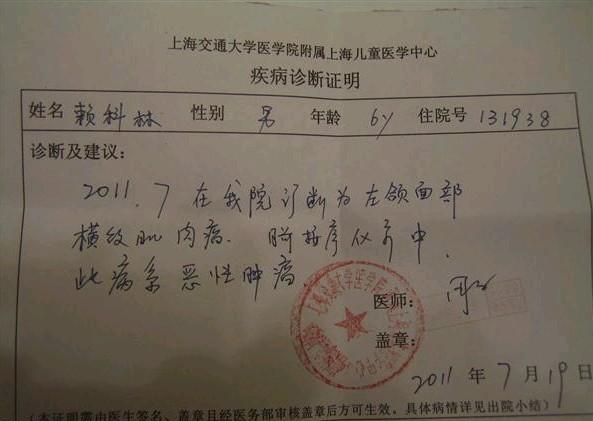 上海交通大学医学院附属上海儿童医学中心
疾病诊断证明
姓名 赖科林 性别 男 年龄 6y 住院号 131938
诊断及建议：
2011.7 在我院诊断为左颌面部
横纹肌肉瘤.
此病系恶性肿瘤
医师：
盖章：
2011 年 7 月 19 日
(本证明需由医生签名、盖章且经医务部审核盖章后方可生效。具体病情详见出院小结)